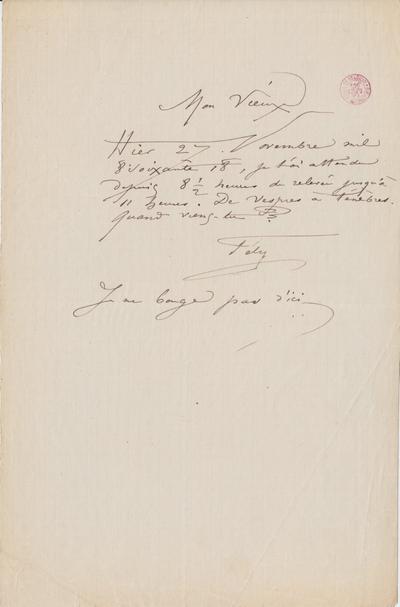 Mon Vieux
Hier 27 Novembre mil
8 soixante 18, je t'ai attendu
depuis 8 1/2 heures de relevée jusqu'à
11 heures. De Vespres à Ténèbres.
Quand viens-tu ?
Fély
Je ne bouge pas d'ici